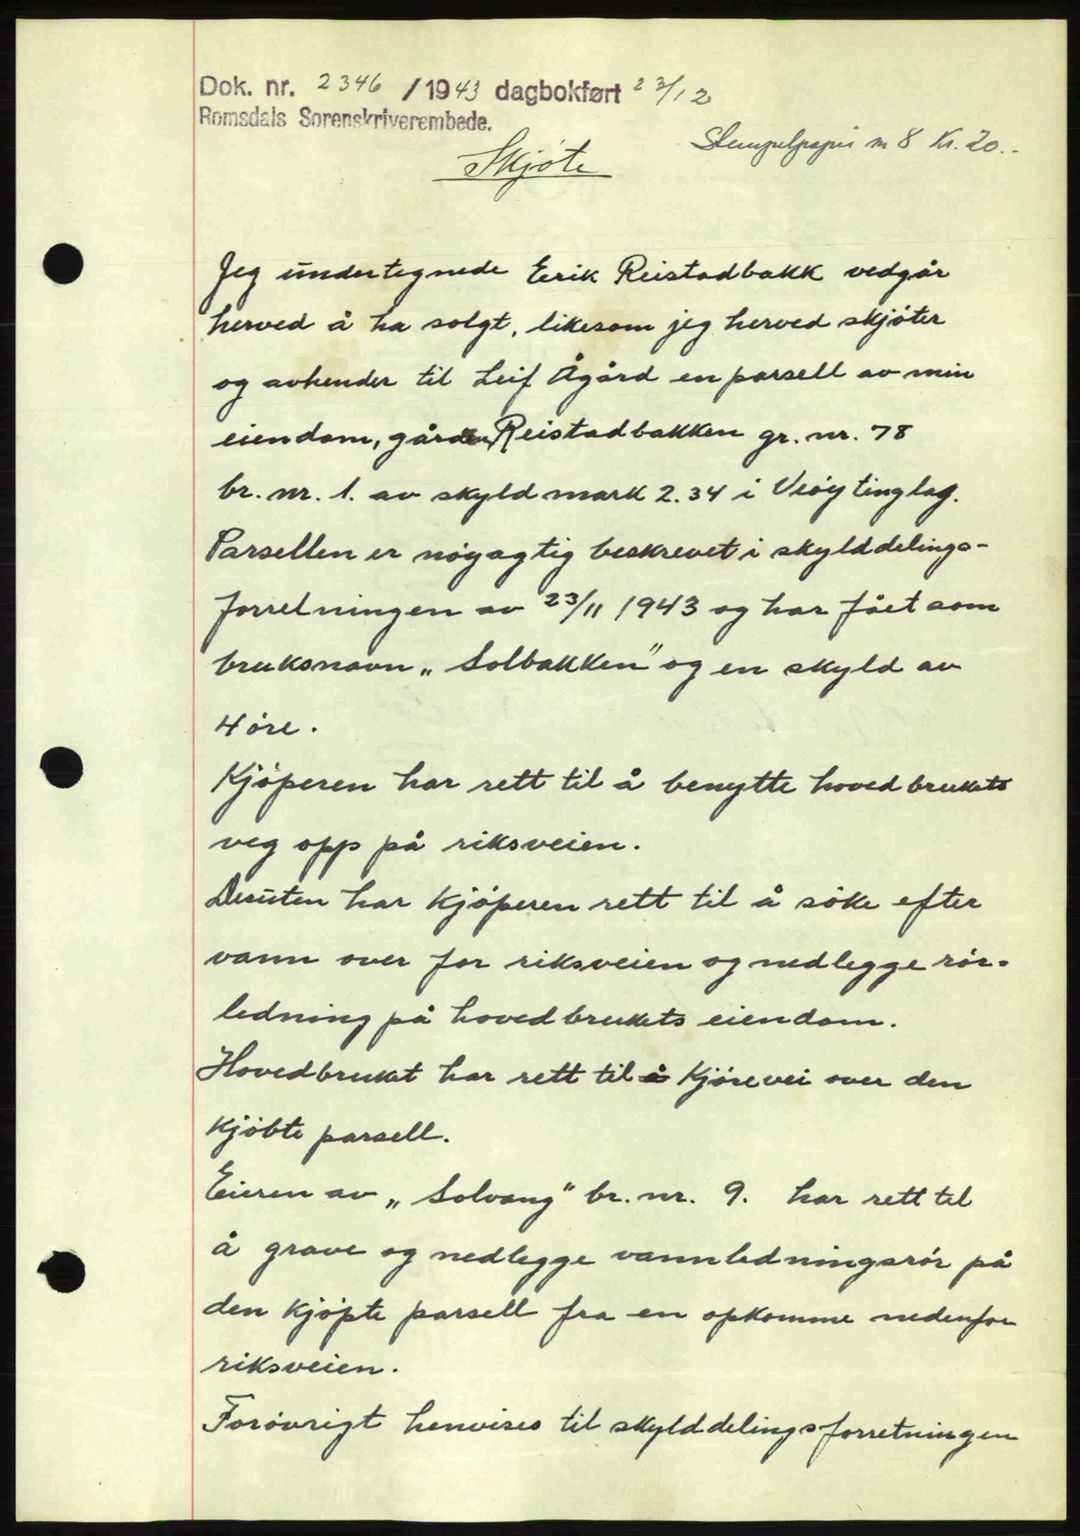 Dok. nr. 2346 / 1943 dagbokført 23/12
Romsdals Sorenskriverembede.
Stempelpapir m 8 Kr. 20..
Skjøte
Jeg undertegnede Eerik Reistadbakk vedgår
herved å ha solgt, likesom jeg herved skjøter
og avhender til Leif Ågård en parsell av min
eiendom, gården Reistadbakken gr. nr. 78
br. nr. 1. av skyld mark 2.34 i Veøy tinglag.
Parsellen er nøyagtig beskrevet i skylddelings-
forretningen av 23/11 1943 og har fået som
bruksnavn „Solbakken” og en skyld av
4 øre.
Kjøperen har rett til å benytte hovedbrukets
veg opp på riksveien.
Desuten har kjøperen rett til å søke efter
vann over for riksveien og nedlegge rør-
ledning på hovedbrukets eiendom.
Hovedbruket har rett til å kjørevei over den
kjøbte parsell.
Eieren av „Solvang” br. nr. 9. har rett til
å grave og nedlegge vannledningsrør på
den kjøpte parsell fra en opkomme nedenfor
riksveien.
Forøvrigt henvises til skylddelingsforretningen